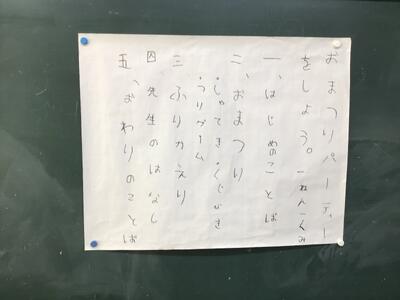 おまつりパーティー
をしよう。一ねん一くみ
一、はじめのことば
二、おまつり
・しゃてき・くじびき
・つりゲーム
三 ふりかえり
四 先生のはなし
五、おわりのことば